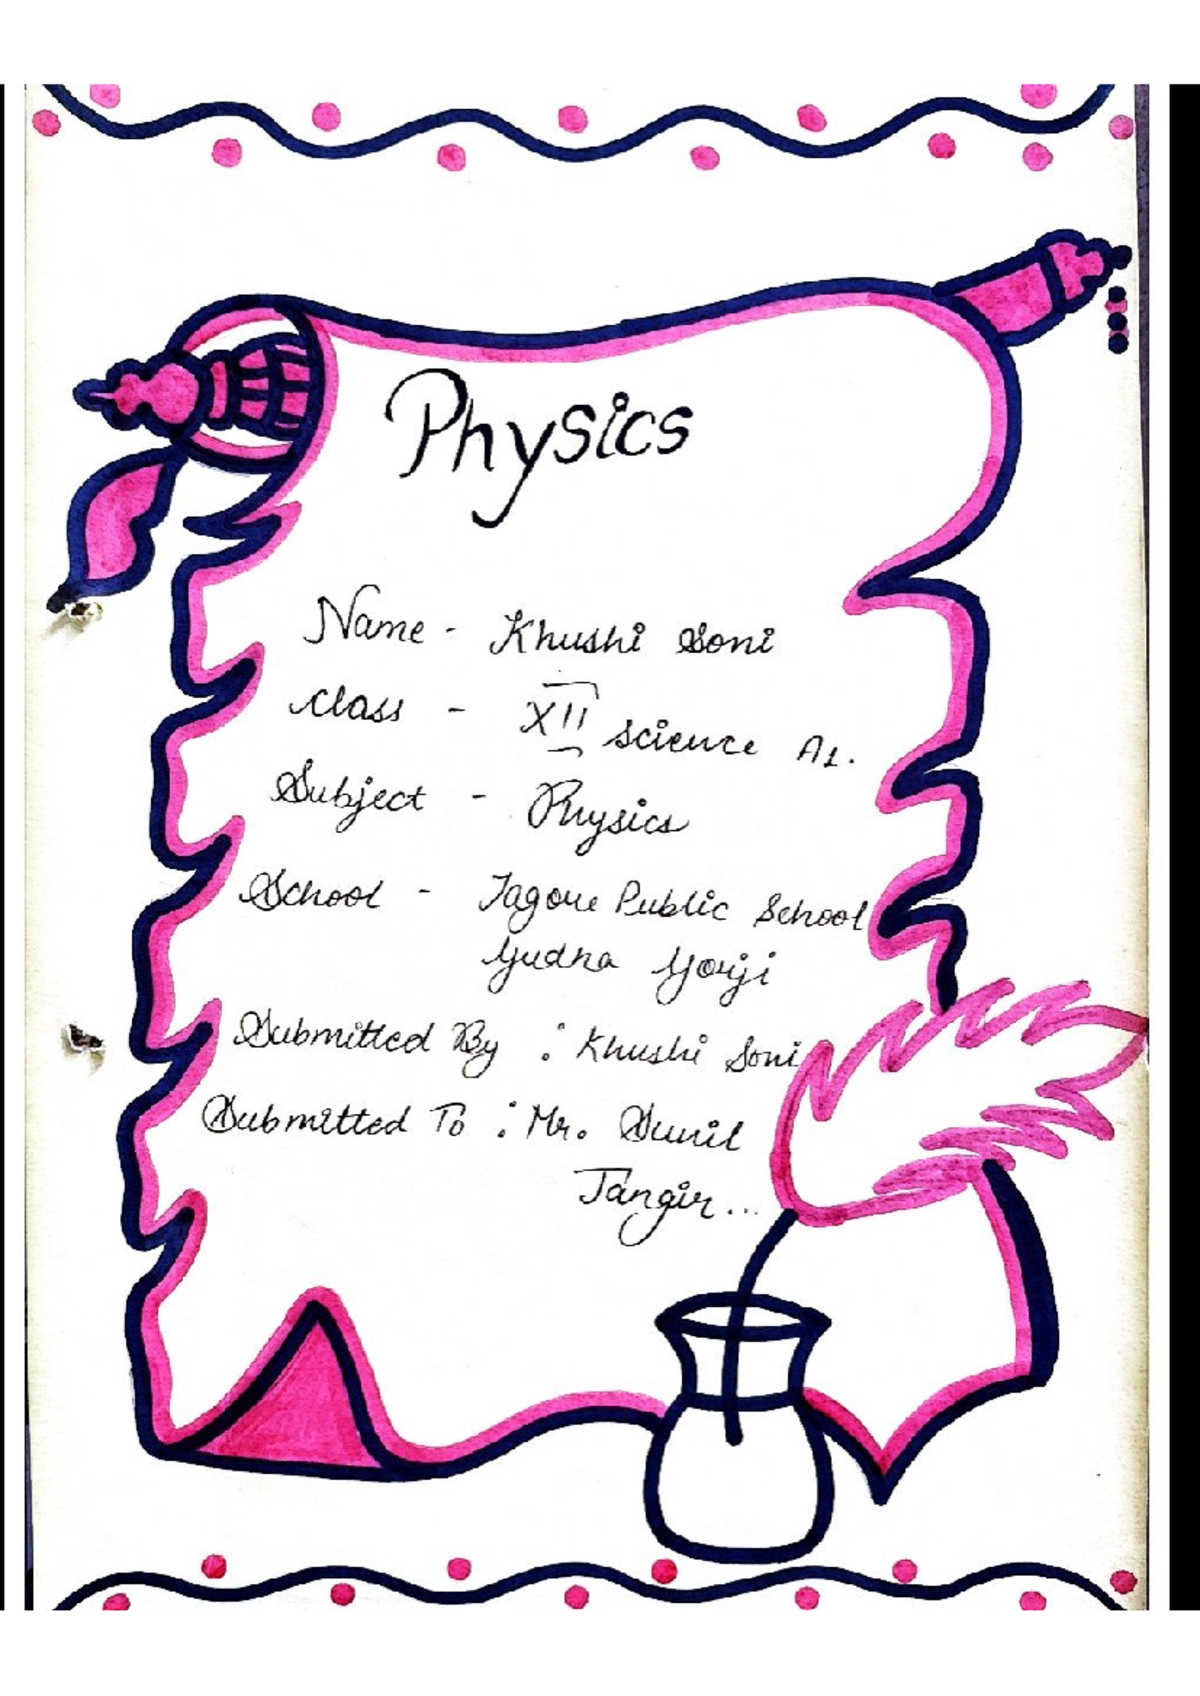 Physics
Name - Khushi Soni
Class - XII Science A1.
Subject - Physics
School - Tagore Public School
Gudha Gorji
Submitted By : Khushi Soni
Submitted To : Mr. Sunil
Jangir...